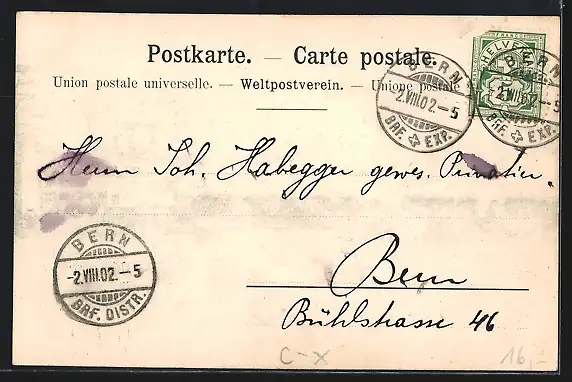 Postkarte. — Carte postale.
Union postale universelle. — Weltpostverein. — Unione postale
FRANCO
HELVETIA
BERN
2.VIII.02.–5
BRF. EXP.
BERN
2.VIII.02.–5
BRF. EXP.
Herrn Joh. Habegger gewes. Privatier.
BERN
-2.VIII.02.–5
BRF. DISTR.
Bern
Bühlstrasse 46
C-X
16,-